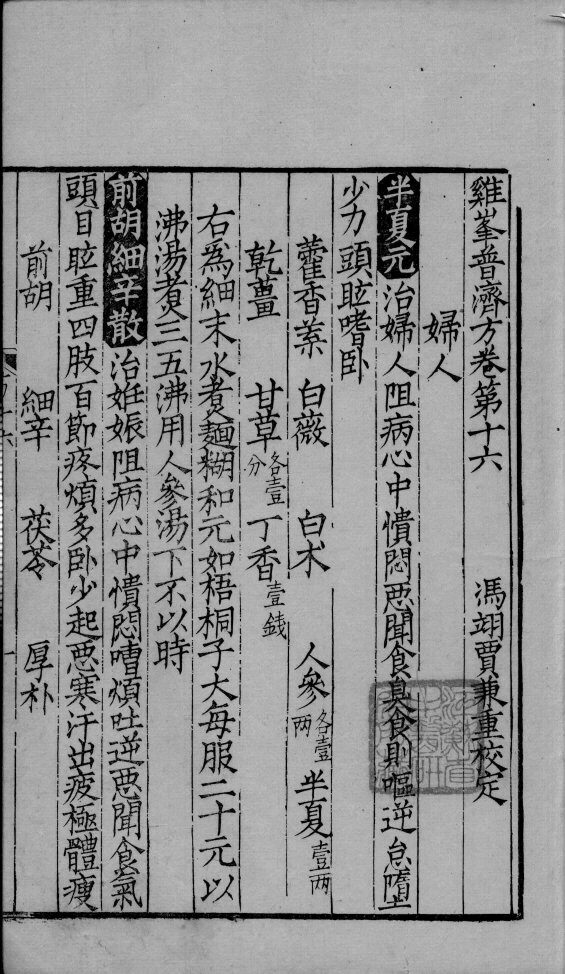 雞峯普濟方卷第十六 馮翊賈兼重校定
婦人
半夏元 治婦人阻病心中憒悶惡聞食臭食則嘔逆怠墮
少力頭眩嗜卧
藿香葉 白薇 白术 人參各壹兩 半夏壹兩
乾薑 甘草各壹分 丁香壹錢
右爲細末水煑麵糊和元如梧桐子大每服二十元以
沸湯煑三五沸用人參湯下不以時
前胡細辛散 治妊娠阻病心中憒悶嘈煩吐逆惡聞食氣
頭目眩重四肢百節疼煩多卧少起惡寒汗出疲極體瘦
前胡 細辛 茯苓 厚朴
一